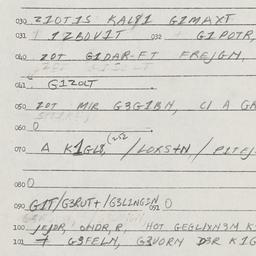 030 Z1OT1S KAL81 G1MAXT
031 1 1ZBOV1T 032 G1POTR,
040 ZOT G1DAR-FT FREJGN,
041 G1ZOLT
050 ZOT MIR G3G1BN, C1 A GR
060 0
070 A K1GL8, (252 /LOXS+N /
080 0
090 G1T/G3RUT+/G3L1NG3N 091 0
100 JEJDR, ONDR, R, HOT GEGL1XN3M
101 + G3FELN, G3VORN D3R K1G